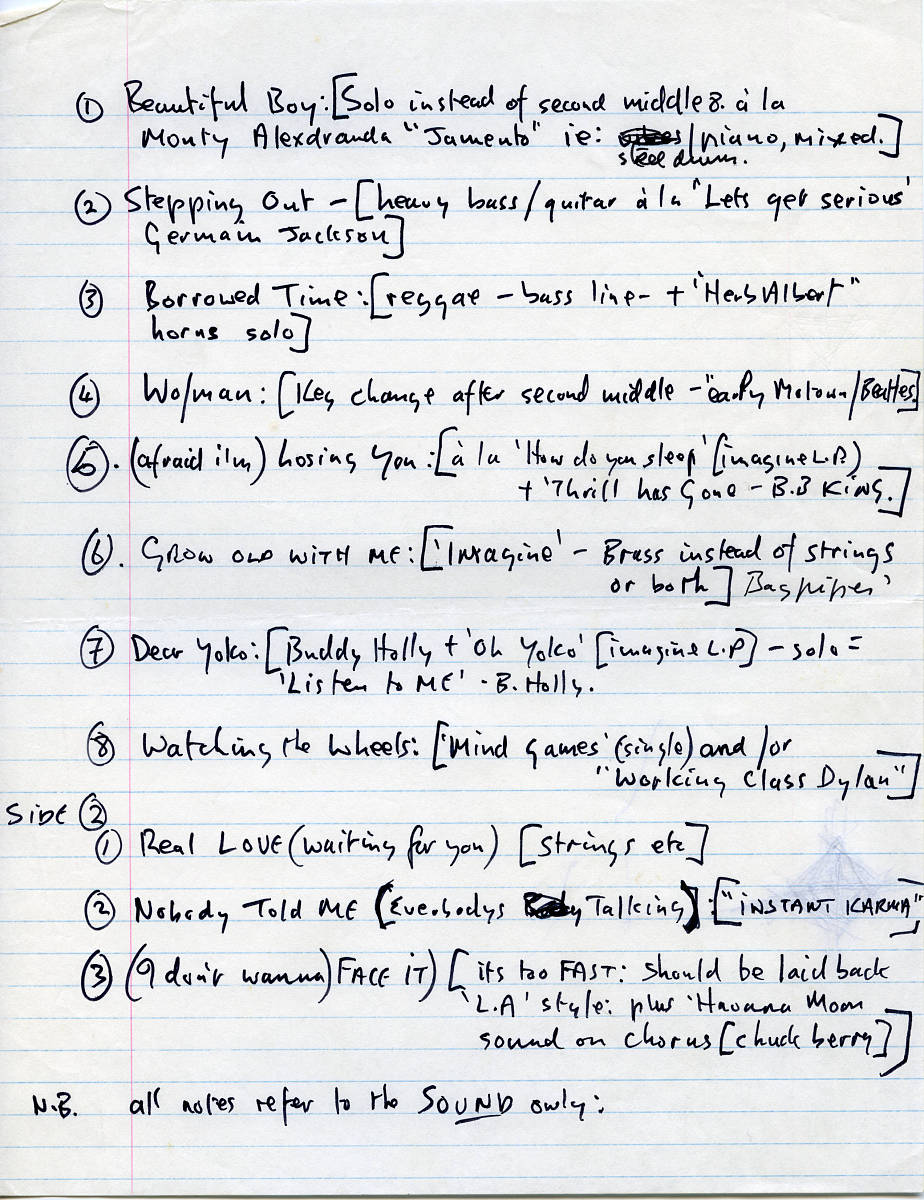 ① Beautiful Boy: [Solo instead of second middle 8. à la
Monty Alexdranda "Jamento" ie: /piano, mixed.]
steel drum.
② Stepping Out – [heavy bass/guitar à la "Lets get serious'
Germain Jackson]
③ Borrowed Time: [reggae – bass line – + "Herb Albert"
horns solo]
④ Wo/man: [Key change after second middle – "early Motown/Beatles]
⑤. (afraid i'm) losing you: [à la 'How do you sleep' [imagine L.P.)
+ 'Thrill has Gone – B.B KING.]
⑥. GROW OLD WITH ME: ['IMAGINE' – Brass instead of strings
or both] Bagpipes'
⑦ Dear Yoko: [Buddy Holly + 'Oh Yoko' [imagine L.P] – solo =
'Listen to ME' - B. Holly.
⑧ Watching the Wheels: ['Mind games' (single) and /or
"Working Class Dylan"]
SIDE ②
① Real LOVE (waiting for you) [strings etc]
② Nobody Told ME (Everbodys Talking): ["INSTANT KARMA"]
③ (I don't wanna) FACE IT) [its too FAST: should be laid back
'L.A' style: plus 'Havana Moon
sound on chorus [chuck berry]]
N.B. all notes refer to the SOUND only: